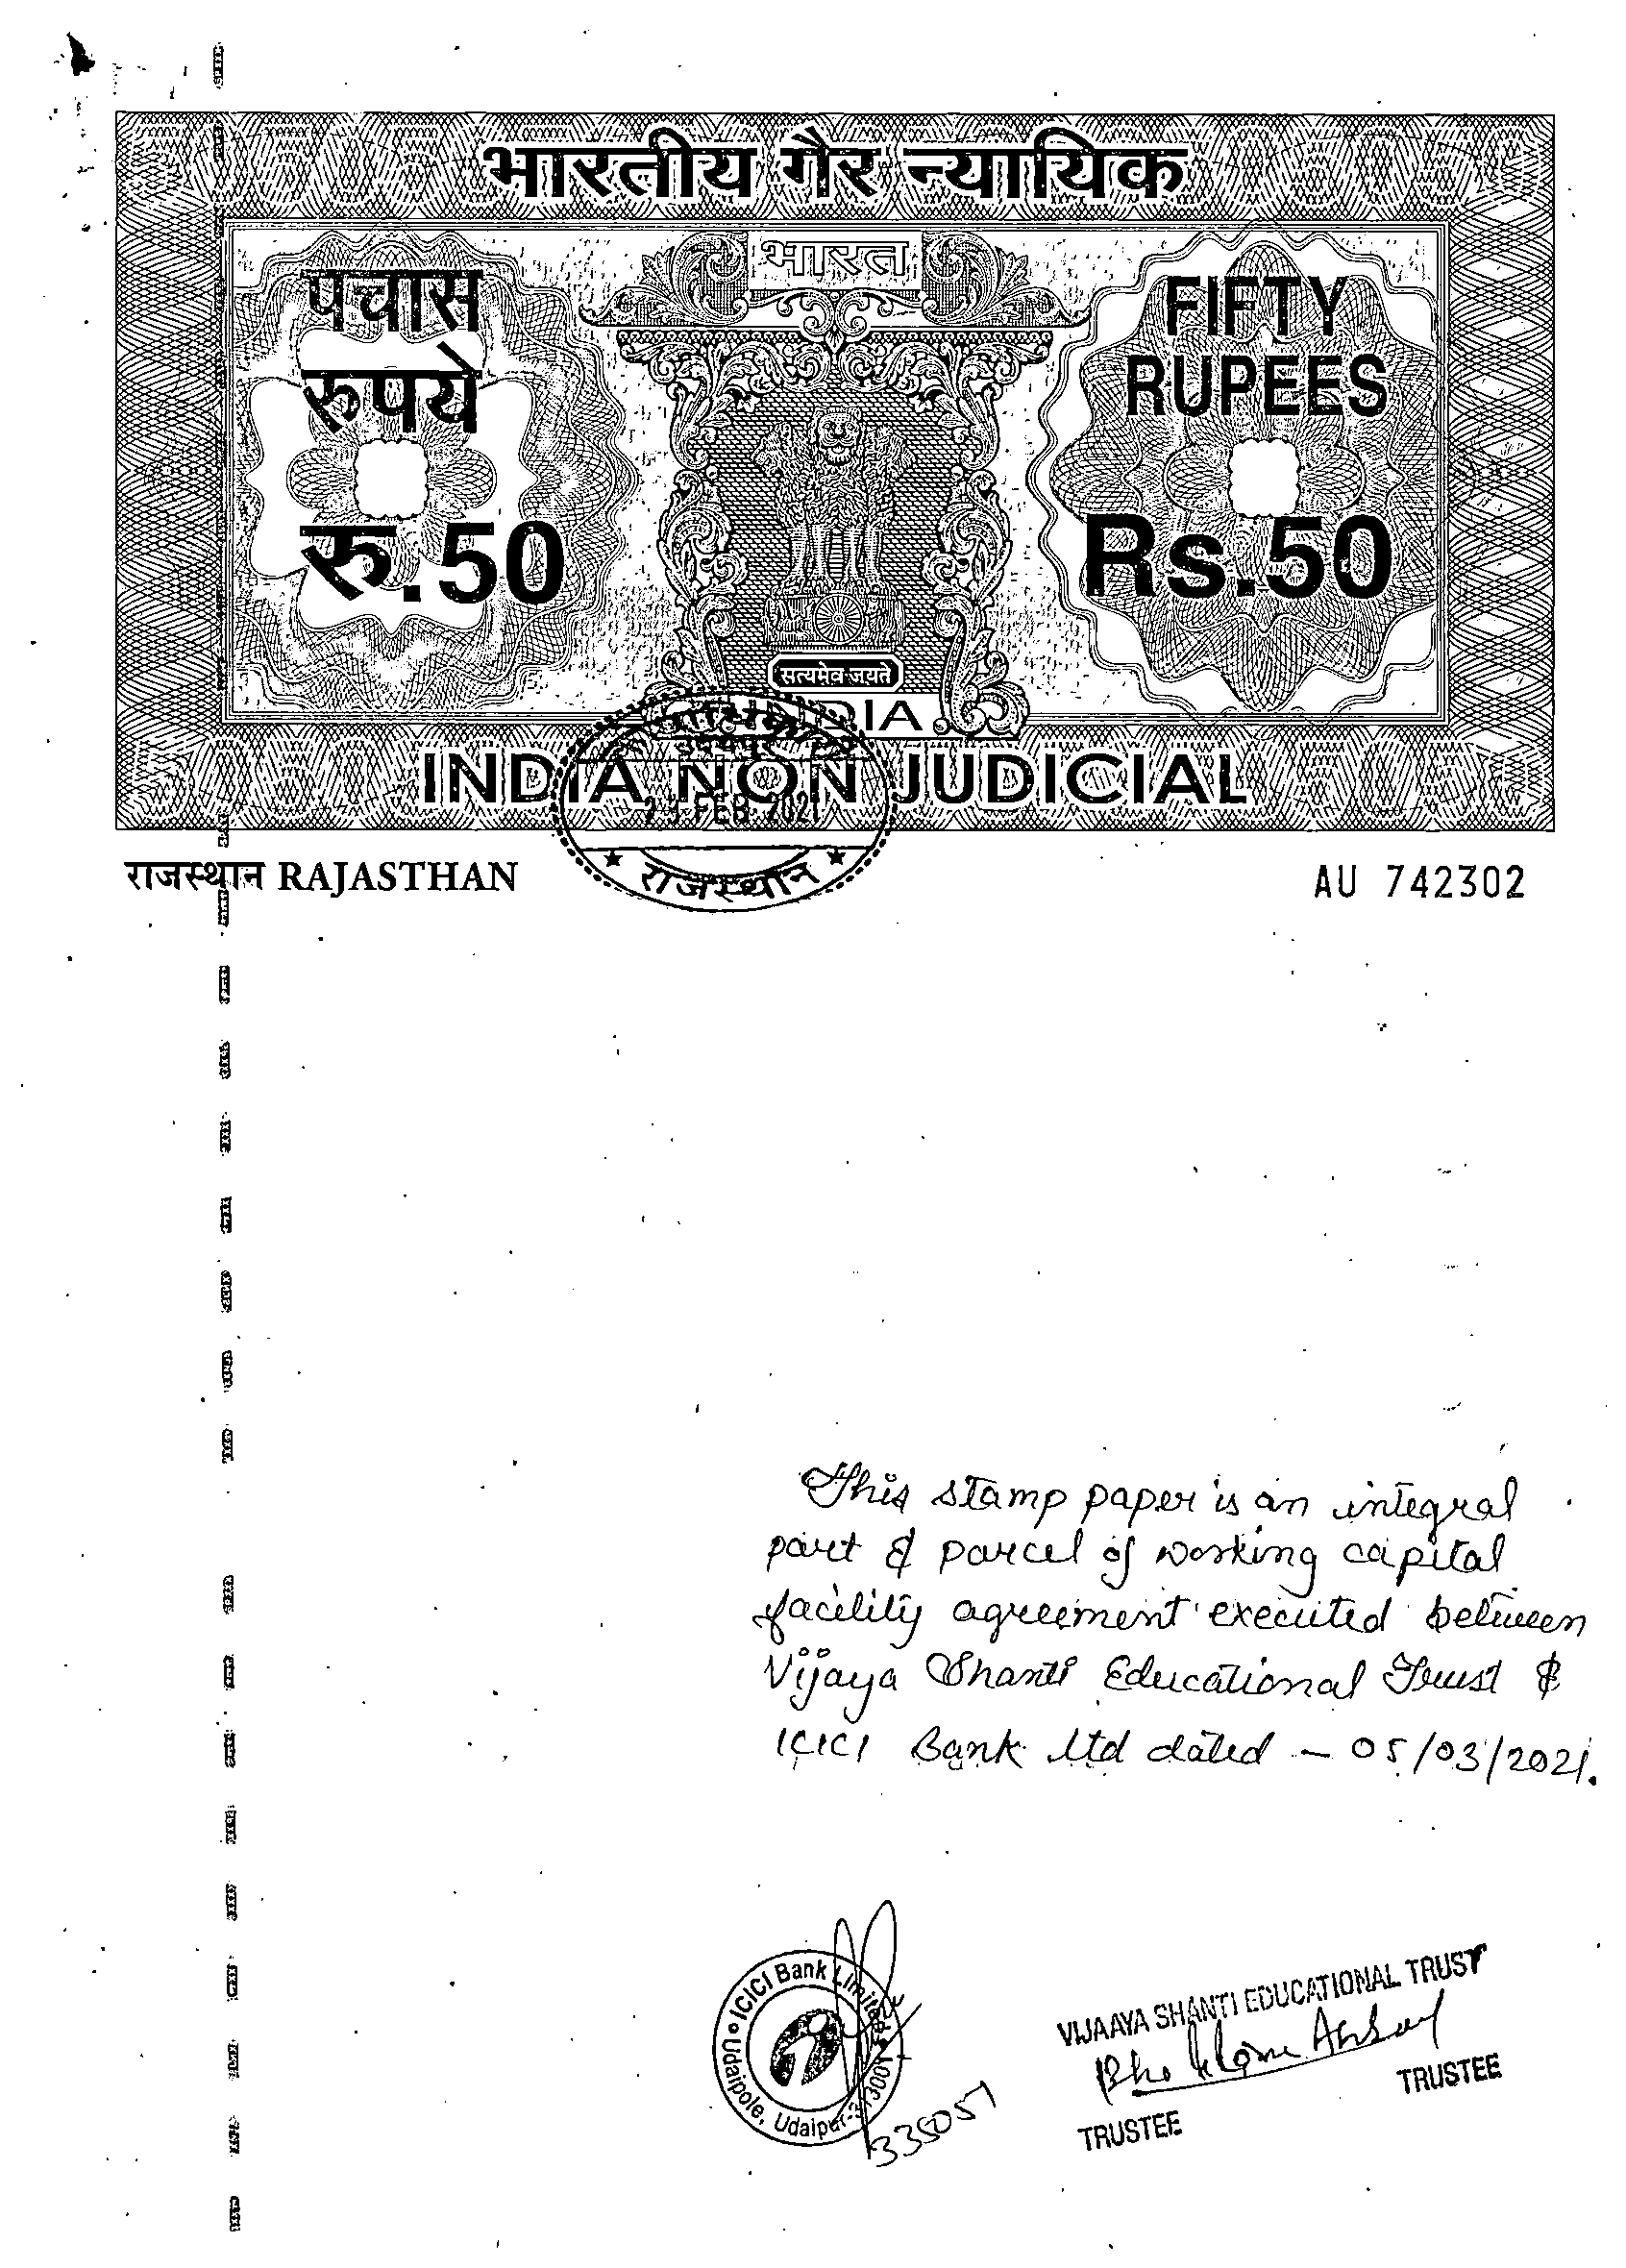 भारतीय गैर न्यायिक
भारत
पचास
रुपये
रु.50
FIFTY
RUPEES
Rs.50
सत्यमेव जयते
INDIA
INDIA NON JUDICIAL
उदयपुर
FEB 2021
राजस्थान
राजस्थान RAJASTHAN
AU 742302
This stamp paper is an integral
part & parcel of working capital
facility agreement executed between
Vijaya Shanti Educational Trust &
ICICI Bank Ltd dated - 05/03/2021.
ICICI Bank Limited
Udaipole, Udaipur-313001
335057
VIJAAYA SHANTI EDUCATIONAL TRUST
TRUSTEE
TRUSTEE